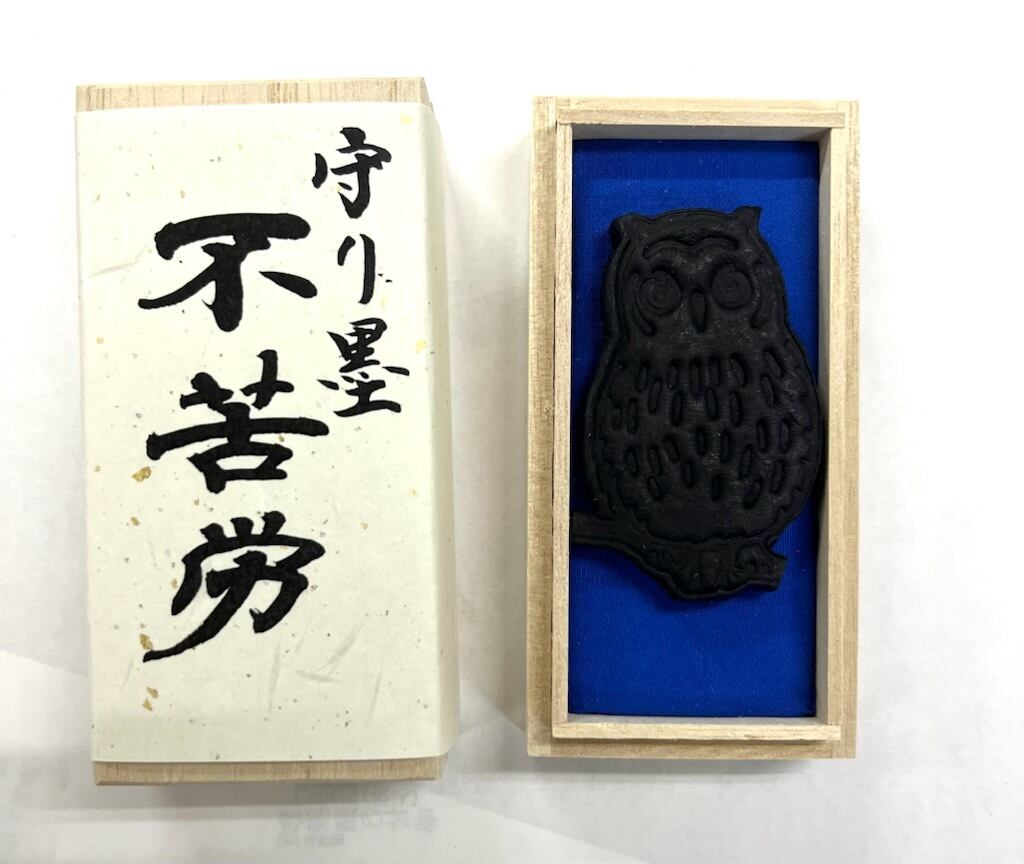 守り墨
不苦労